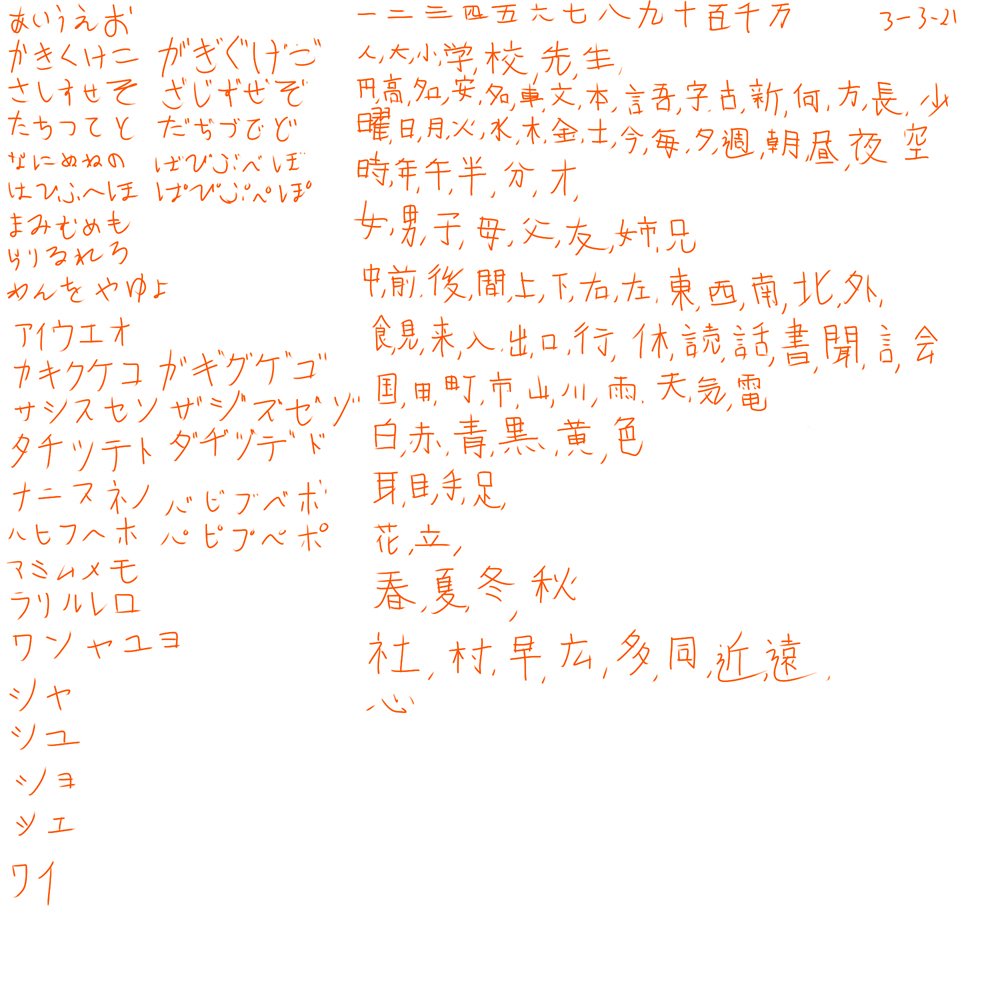 あいうえお
かきくけこ がぎぐげご
さしすせそ ざじずぜぞ
たちつてと だぢづでど
なにぬねの ばびぶべぼ
はひふへほ ぱぴぷぺぽ
まみむめも
らりるれろ
わんをやゆよ
アイウエオ
カキクケコ ガギグゲゴ
サシスセソ ザジズゼゾ
タチツテト ダヂヅデド
ナニヌネノ バビブベボ
ハヒフヘホ パピプペポ
マミムメモ
ラリルレロ
ワンャユヨ
シャ
シュ
ショ
シェ
ワイ
一二三四五六七八九十百千万 3-3-21
人,大,小,学,校,先,生,
円,高,名,安,名,車,文,本,言吾,字,古,新,何,方,長,少
曜,日,月,火,水,木,金,土,今,毎,夕,週,朝,昼,夜,空
時,年,午,半,分,才,
女,男,子,母,父,友,姉,兄
中,前,後,間,上,下,右,左,東,西,南,北,外,
食,見,来,入,出,口,行,休,読,話,書,聞,言,会
国,田,町,市,山,川,雨,天,気,電
白,赤,青,黒,黄,色
耳,目,手,足,
花,立,
春,夏,冬,秋
社,村,早,広,多,同,近,遠,
心